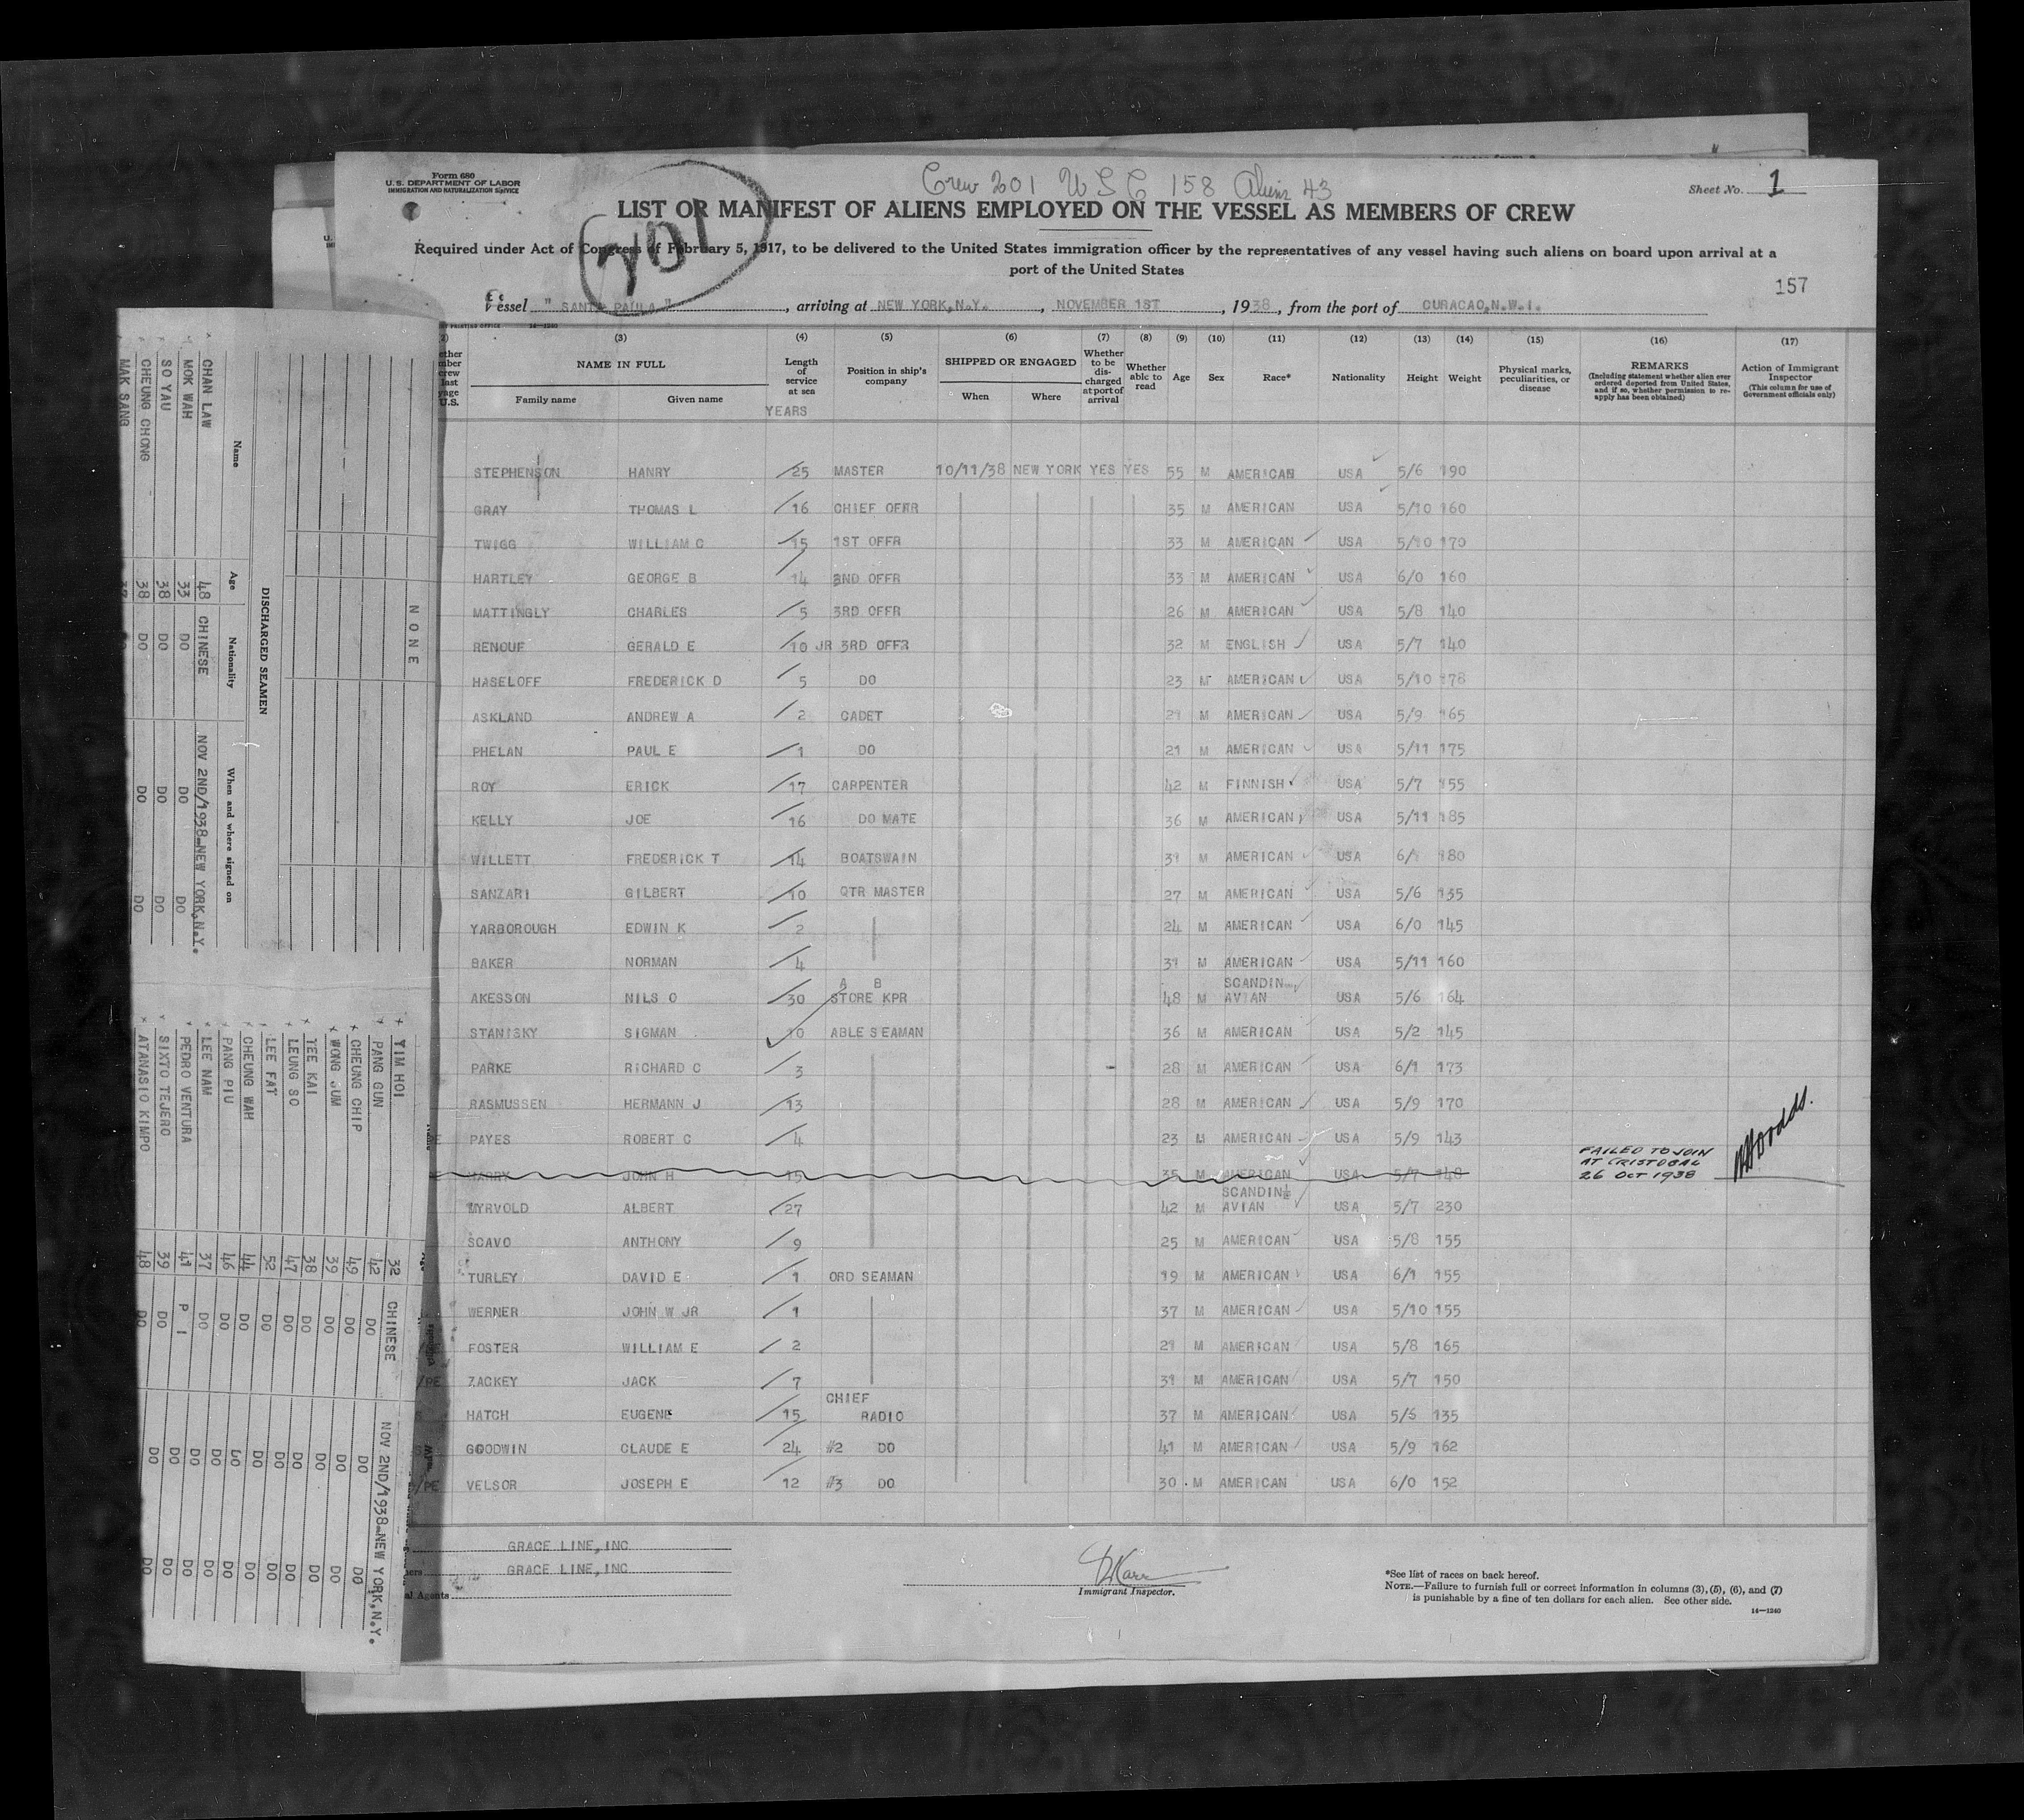 Form 680
U.S. DEPARTMENT OF LABOR
IMMIGRATION AND NATURALIZATION SERVICE
Crew 201 USC 158 Aliens 43
Sheet No. 1
LIST OR MANIFEST OF ALIENS EMPLOYED ON THE VESSEL AS MEMBERS OF CREW
201
Required under Act of Congress of February 5, 1917, to be delivered to the United States immigration officer by the representatives of any vessel having such aliens on board upon arrival at a
port of the United States
157
Vessel " SANTA PAULA ", arriving at NEW YORK,N.Y., NOVEMBER 1ST, 1938, from the port of CURACAO,N.W.I.
(3) (4) (5) (6) (7) (8) (9) (10) (11) (12) (13) (14) (15) (16) (17)
NAME IN FULL
Family name Given name
Length of service at sea
YEARS
Position in ship's company
SHIPPED OR ENGAGED
When Where
Whether to be discharged at port of arrival
Whether able to read
Age Sex Race* Nationality Height Weight
Physical marks, peculiarities, or disease
REMARKS
(Including statement whether alien ever ordered deported from United States, and if so, whether permission to reapply has been obtained)
Action of Immigrant Inspector
(This column for use of Government officials only)
STEPHENSON HANRY 25 MASTER 10/11/38 NEW YORK YES YES 55 M AMERICAN USA 5/6 190
GRAY THOMAS L 16 CHIEF OFRR 35 M AMERICAN USA 5/10 160
TWIGG WILLIAM C 15 1ST OFFR 33 M AMERICAN USA 5/10 170
HARTLEY GEORGE B 14 2ND OFFR 33 M AMERICAN USA 6/0 160
MATTINGLY CHARLES 5 3RD OFFR 26 M AMERICAN USA 5/8 140
RENOUF GERALD E 10 JR 3RD OFFR 32 M ENGLISH USA 5/7 140
HASELOFF FREDERICK D 5 DO 23 M AMERICAN USA 5/10 178
ASKLAND ANDREW A 2 CADET 21 M AMERICAN USA 5/9 165
PHELAN PAUL E 1 DO 21 M AMERICAN USA 5/11 175
ROY ERICK 17 CARPENTER 42 M FINNISH USA 5/7 155
KELLY JOE 16 DO MATE 36 M AMERICAN USA 5/11 185
WILLETT FREDERICK T 14 BOATSWAIN 31 M AMERICAN USA 6/1 180
SANZARI GILBERT 10 QTR MASTER 27 M AMERICAN USA 5/6 135
YARBOROUGH EDWIN K 2 24 M AMERICAN USA 6/0 145
BAKER NORMAN 4 31 M AMERICAN USA 5/11 160
AKESSON NILS O 30 A B STORE KPR 48 M SCANDINAVIAN USA 5/6 164
STANISKY SIGMAN 10 ABLE SEAMAN 36 M AMERICAN USA 5/2 145
PARKE RICHARD C 3 28 M AMERICAN USA 6/1 173
RASMUSSEN HERMANN J 13 28 M AMERICAN USA 5/9 170
PAYES ROBERT C 4 23 M AMERICAN USA 5/9 143
JOHN H 15 35 M AMERICAN USA 5/7 148 FAILED TO JOIN
AT CRISTOBAL
26 OCT 1938
MYRVOLD ALBERT 27 42 M SCANDINAVIAN USA 5/7 230
SCAVO ANTHONY 9 25 M AMERICAN USA 5/8 155
TURLEY DAVID E 1 ORD SEAMAN 19 M AMERICAN USA 6/1 155
WERNER JOHN W JR 1 37 M AMERICAN USA 5/10 155
FOSTER WILLIAM E 2 21 M AMERICAN USA 5/8 165
ZACKEY JACK 7 31 M AMERICAN USA 5/7 150
HATCH EUGENE 15 CHIEF RADIO 37 M AMERICAN USA 5/6 135
GOODWIN CLAUDE E 24 #2 DO 41 M AMERICAN USA 5/9 162
VELSOR JOSEPH E 12 #3 DO 30 M AMERICAN USA 6/0 152
GRACE LINE, INC
GRACE LINE, INC
Immigrant Inspector.
*See list of races on back hereof.
NOTE.—Failure to furnish full or correct information in columns (3), (5), (6), and (7)
is punishable by a fine of ten dollars for each alien. See other side.
14—1240
NONE
DISCHARGED SEAMEN
Name Age Nationality When and where signed on
CHAN LAW 48 CHINESE NOV 2ND/1938-NEW YORK,N.Y.
MOK WAH 33 DO DO DO
SO YAU 38 DO DO DO
CHEUNG CHONG 38 DO DO DO
MAK SANG
YIM HOI 32 CHINESE NOV 2ND/1938-NEW YORK,N.Y.
PANG GUN 42 DO DO DO
CHEUNG CHIP 49 DO DO DO
WONG SUM 39 DO DO DO
YEE KAI 38 DO DO DO
LEUNG SO 47 DO DO DO
LEE FAT 52 DO DO DO
CHEUNG WAH 44 DO DO DO
PANG PIU 46 DO DO DO
LEE NAM 37 DO DO DO
PEDRO VENTURA 41 P I DO DO
SIXTO TEJERO 39 DO DO DO
ATANASIO KIMPO 48 DO DO DO